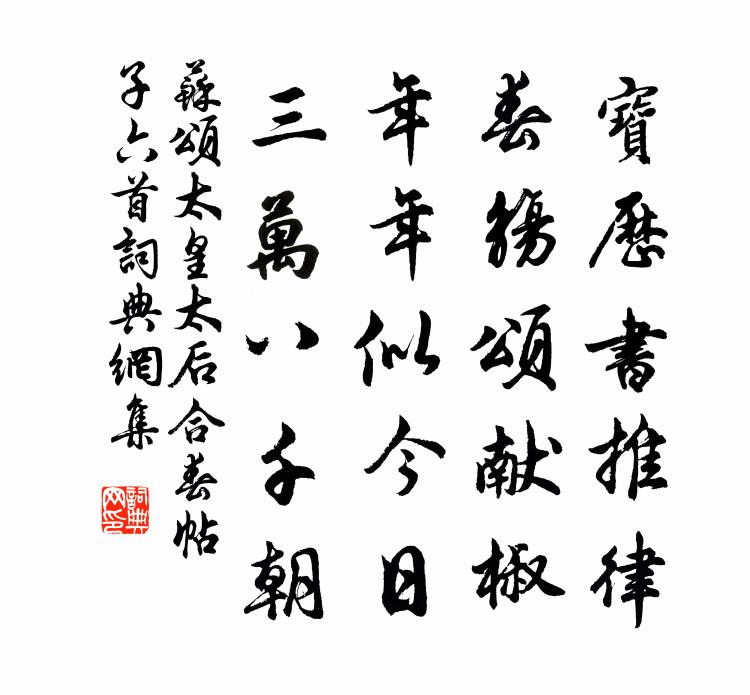 寶歷書推律
春觴頌献椒
年年似今日
三萬八千朝
蘇頌太皇太后合春帖
子六首詞典網集
詞典网印